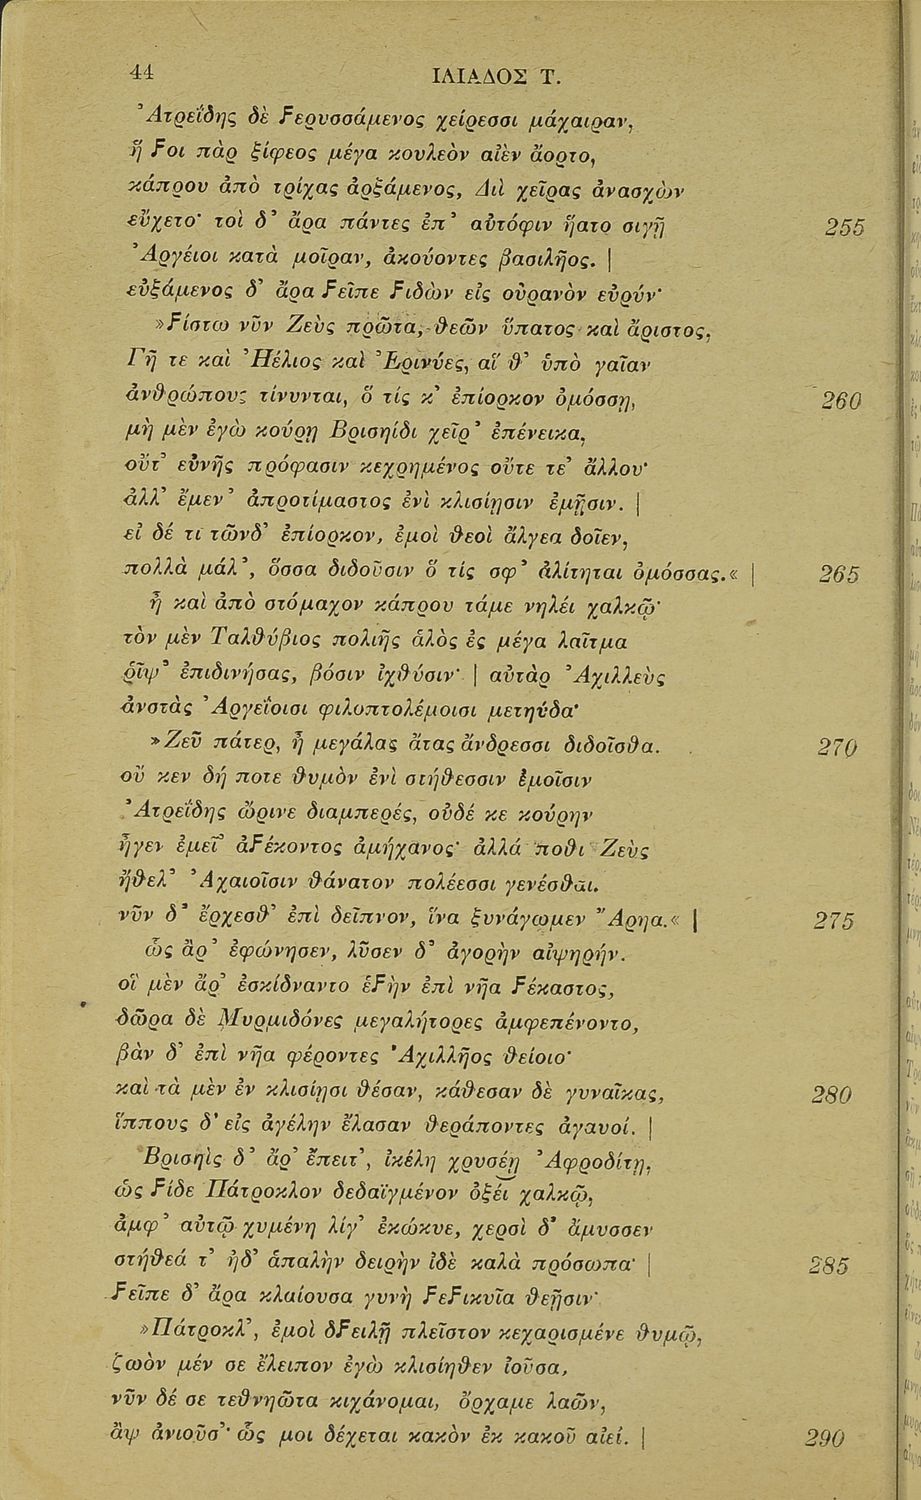 44 ΙΛΙΑΔΟΣ Τ.
Ἀτρεΐδης δὲ Ϝερυσσάμενος χείρεσσι μάχαιραν,
ἥ Ϝοι πὰρ ξίφεος μέγα κουλεὸν αἰὲν ἄορτο,
κάπρου ἀπὸ τρίχας ἀρξάμενος, Διὶ χεῖρας ἀνασχὼν
εὔχετο· τοὶ δ᾽ ἄρα πάντες ἐπ᾽ αὐτόφιν ἥατο σιγῇ 255
Ἀργέιοι κατὰ μοῖραν, ἀκούοντες βασιλῆος. |
εὐξάμενος δ᾽ ἄρα Ϝεῖπε Ϝιδὼν εἰς οὐρανὸν εὐρύν·
»Ϝίστω νῦν Ζεὺς πρῶτα, θεῶν ὕπατος καὶ ἄριστος,
Γῆ τε καὶ Ἠέλιος καὶ Ἐρινύες, αἵ θ᾽ ὑπὸ γαῖαν
ἀνθρώπους τίνυνται, ὅ τίς κ᾽ ἐπίορκον ὀμόσσῃ, 260
μὴ μὲν ἐγὼ κούρῃ Βρισηίδι χεῖρ᾽ ἐπένεικα,
οὔτ᾽ εὐνῆς πρόφασιν κεχρημένος οὔτε τε᾽ ἄλλου·
ἀλλ᾽ ἔμεν᾽ ἀπροτίμαστος ἐνὶ κλισίῃσιν ἐμῇσιν. |
εἰ δέ τι τῶνδ᾽ ἐπίορκον, ἐμοὶ θεοὶ ἄλγεα δοῖεν,
πολλὰ μάλ᾽, ὅσσα διδοῦσιν ὅ τίς σφ᾽ ἀλίτηται ὀμόσσας.« | 265
ἦ καὶ ἀπὸ στόμαχον κάπρου τάμε νηλέι χαλκῷ·
τὸν μὲν Ταλθύβιος πολιῆς ἁλὸς ἐς μέγα λαῖτμα
ῥῖψ᾽ ἐπιδινήσας, βόσιν ἰχθύσιν· | αὐτὰρ Ἀχιλλεὺς
ἀνστὰς Ἀργεΐοισι φιλοπτολέμοισι μετηύδα·
»Ζεῦ πάτερ, ἦ μεγάλας ἄτας ἄνδρεσσι διδοῖσθα. 270
οὔ κεν δή ποτε θυμὸν ἐνὶ στήθεσσιν ἐμοῖσιν
Ἀτρεΐδης ὤρινε διαμπερές, οὐδέ κε κούρην
ἦγεν ἐμεῖ᾽ ἀϜέκοντος ἀμήχανος· ἀλλά ποθι Ζεὺς
ἤθελ᾽ Ἀχαιοῖσιν θάνατον πολέεσσι γενέσθαι.
νῦν δ᾽ ἔρχεσθ᾽ ἐπὶ δεῖπνον, ἵνα ξυνάγωμεν Ἄρηα.« | 275
ὣς ἄρ᾽ ἐφώνησεν, λῦσεν δ᾽ ἀγορὴν αἰψηρήν.
οἳ μὲν ἄρ᾽ ἐσκίδναντο ἑϜὴν ἐπὶ νῆα Ϝέκαστος,
δῶρα δὲ Μυρμιδόνες μεγαλήτορες ἀμφεπένοντο,
βὰν δ᾽ ἐπὶ νῆα φέροντες Ἀχιλλῆος θείοιο·
καὶ τὰ μὲν ἐν κλισίῃσι θέσαν, κάθεσαν δὲ γυναῖκας, 280
ἵππους δ᾽ εἰς ἀγέλην ἔλασαν θεράποντες ἀγαυοί. |
Βρισηὶς δ᾽ ἄρ᾽ ἔπειτ᾽, ἰκέλη χρυσέῃ Ἀφροδίτῃ,
ὡς Ϝίδε Πάτροκλον δεδαϊγμένον ὀξέι χαλκῷ,
ἀμφ᾽ αὐτῷ χυμένη λίγ᾽ ἐκώκυε, χερσὶ δ᾽ ἄμυσσεν
στήθεά τ᾽ ἠδ᾽ ἁπαλὴν δειρὴν ἰδὲ καλὰ πρόσωπα· | 285
Ϝεῖπε δ᾽ ἄρα κλαίουσα γυνὴ ϜεϜικυῖα θεῇσιν·
»Πάτροκλ᾽, ἐμοὶ δϜειλῇ πλεῖστον κεχαρισμένε θυμῷ,
ζωὸν μέν σε ἔλειπον ἐγὼ κλισίηθεν ἰοῦσα,
νῦν δέ σε τεθνηῶτα κιχάνομαι, ὄρχαμε λαῶν,
ἂψ ἀνιοῦσ᾽· ὥς μοι δέχεται κακὸν ἐκ κακοῦ αἰεί. | 290